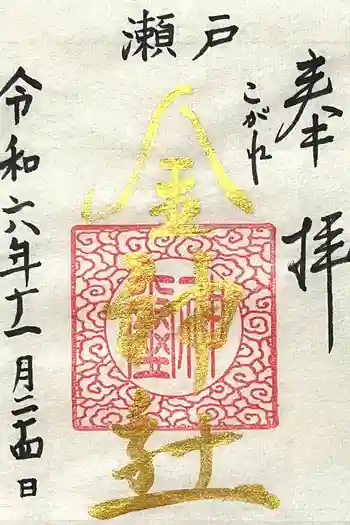 奉拝
瀬戸
こがね
金神社
令和六年十一月二十四日